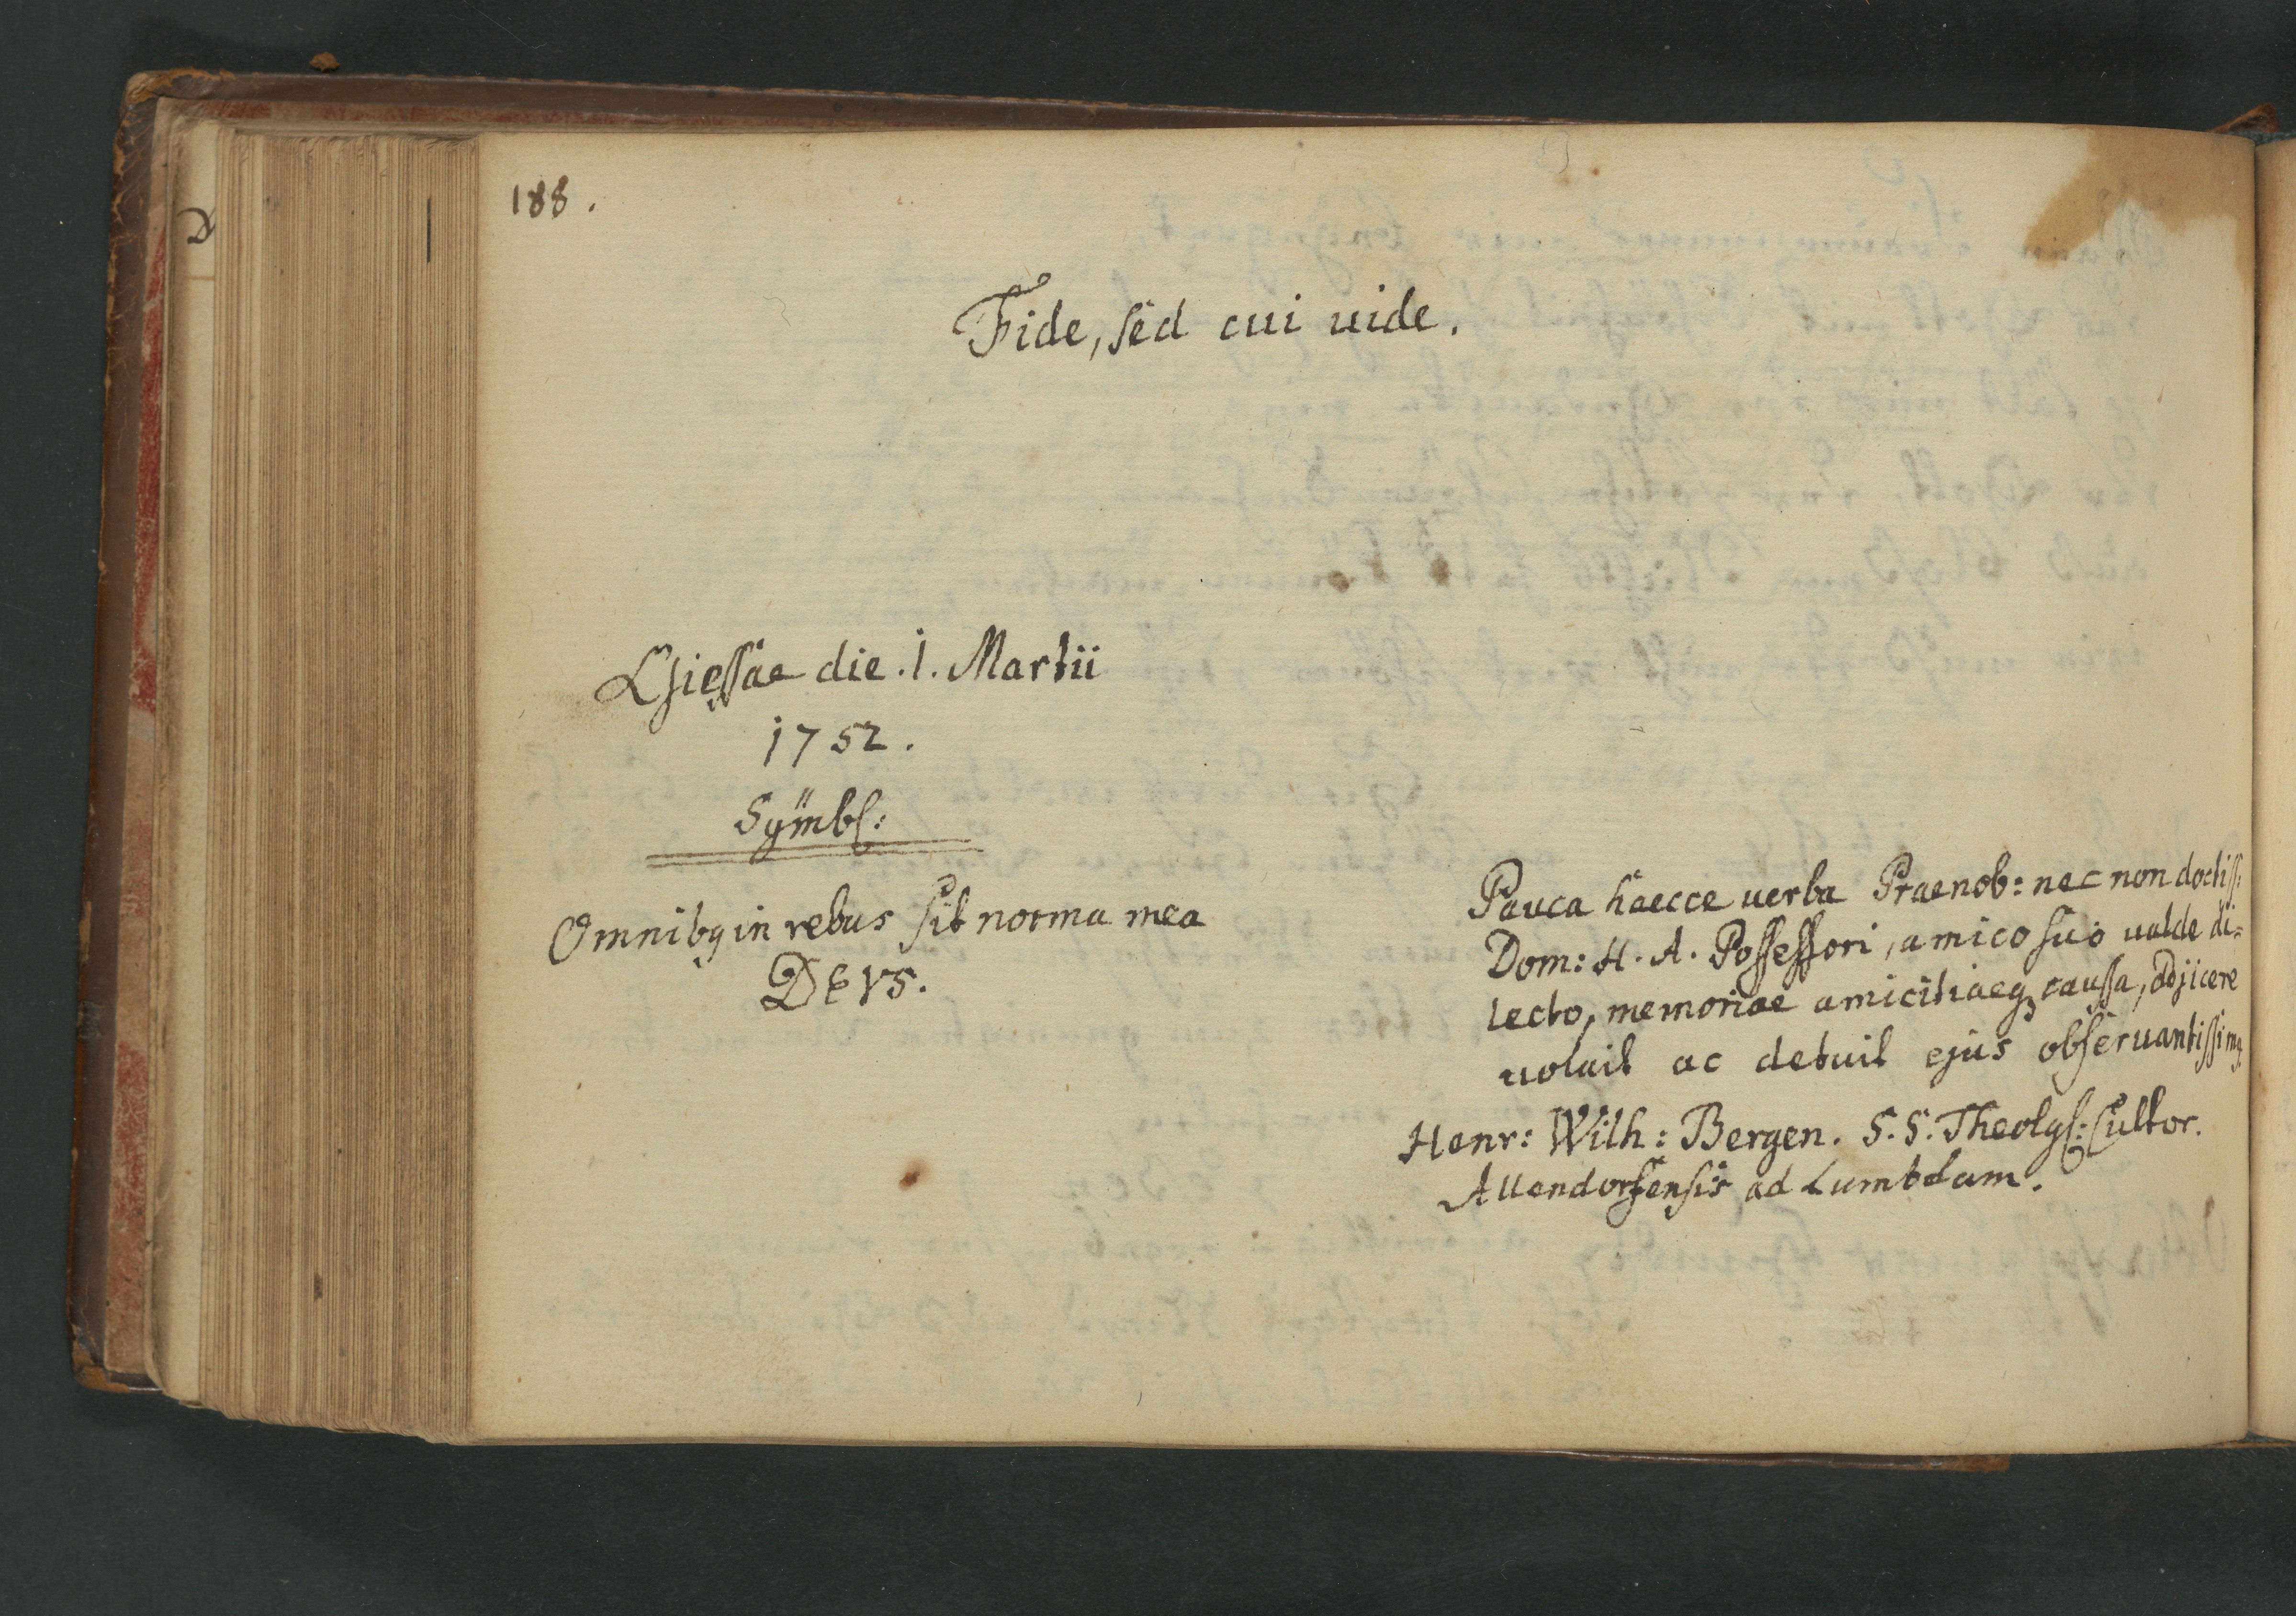 188.
Fide, sed cui uide.
Giessae die .1. Martii
1752.
Symbl:
Omnibq in rebus sit norma mea
DEVS.
Pauca haecce uerba Praenob: nec non doctiss:
Dom: H. A. Possessori, amico suo ualde di=
lecto, memoriae amicitiaeq caussa, adjicere
uoluit ac debuit ejus obseruantissimq
Henr: Wilh: Bergen. S. S. Theolgl: Cultor.
Allendorfensis ad Lumbdam.